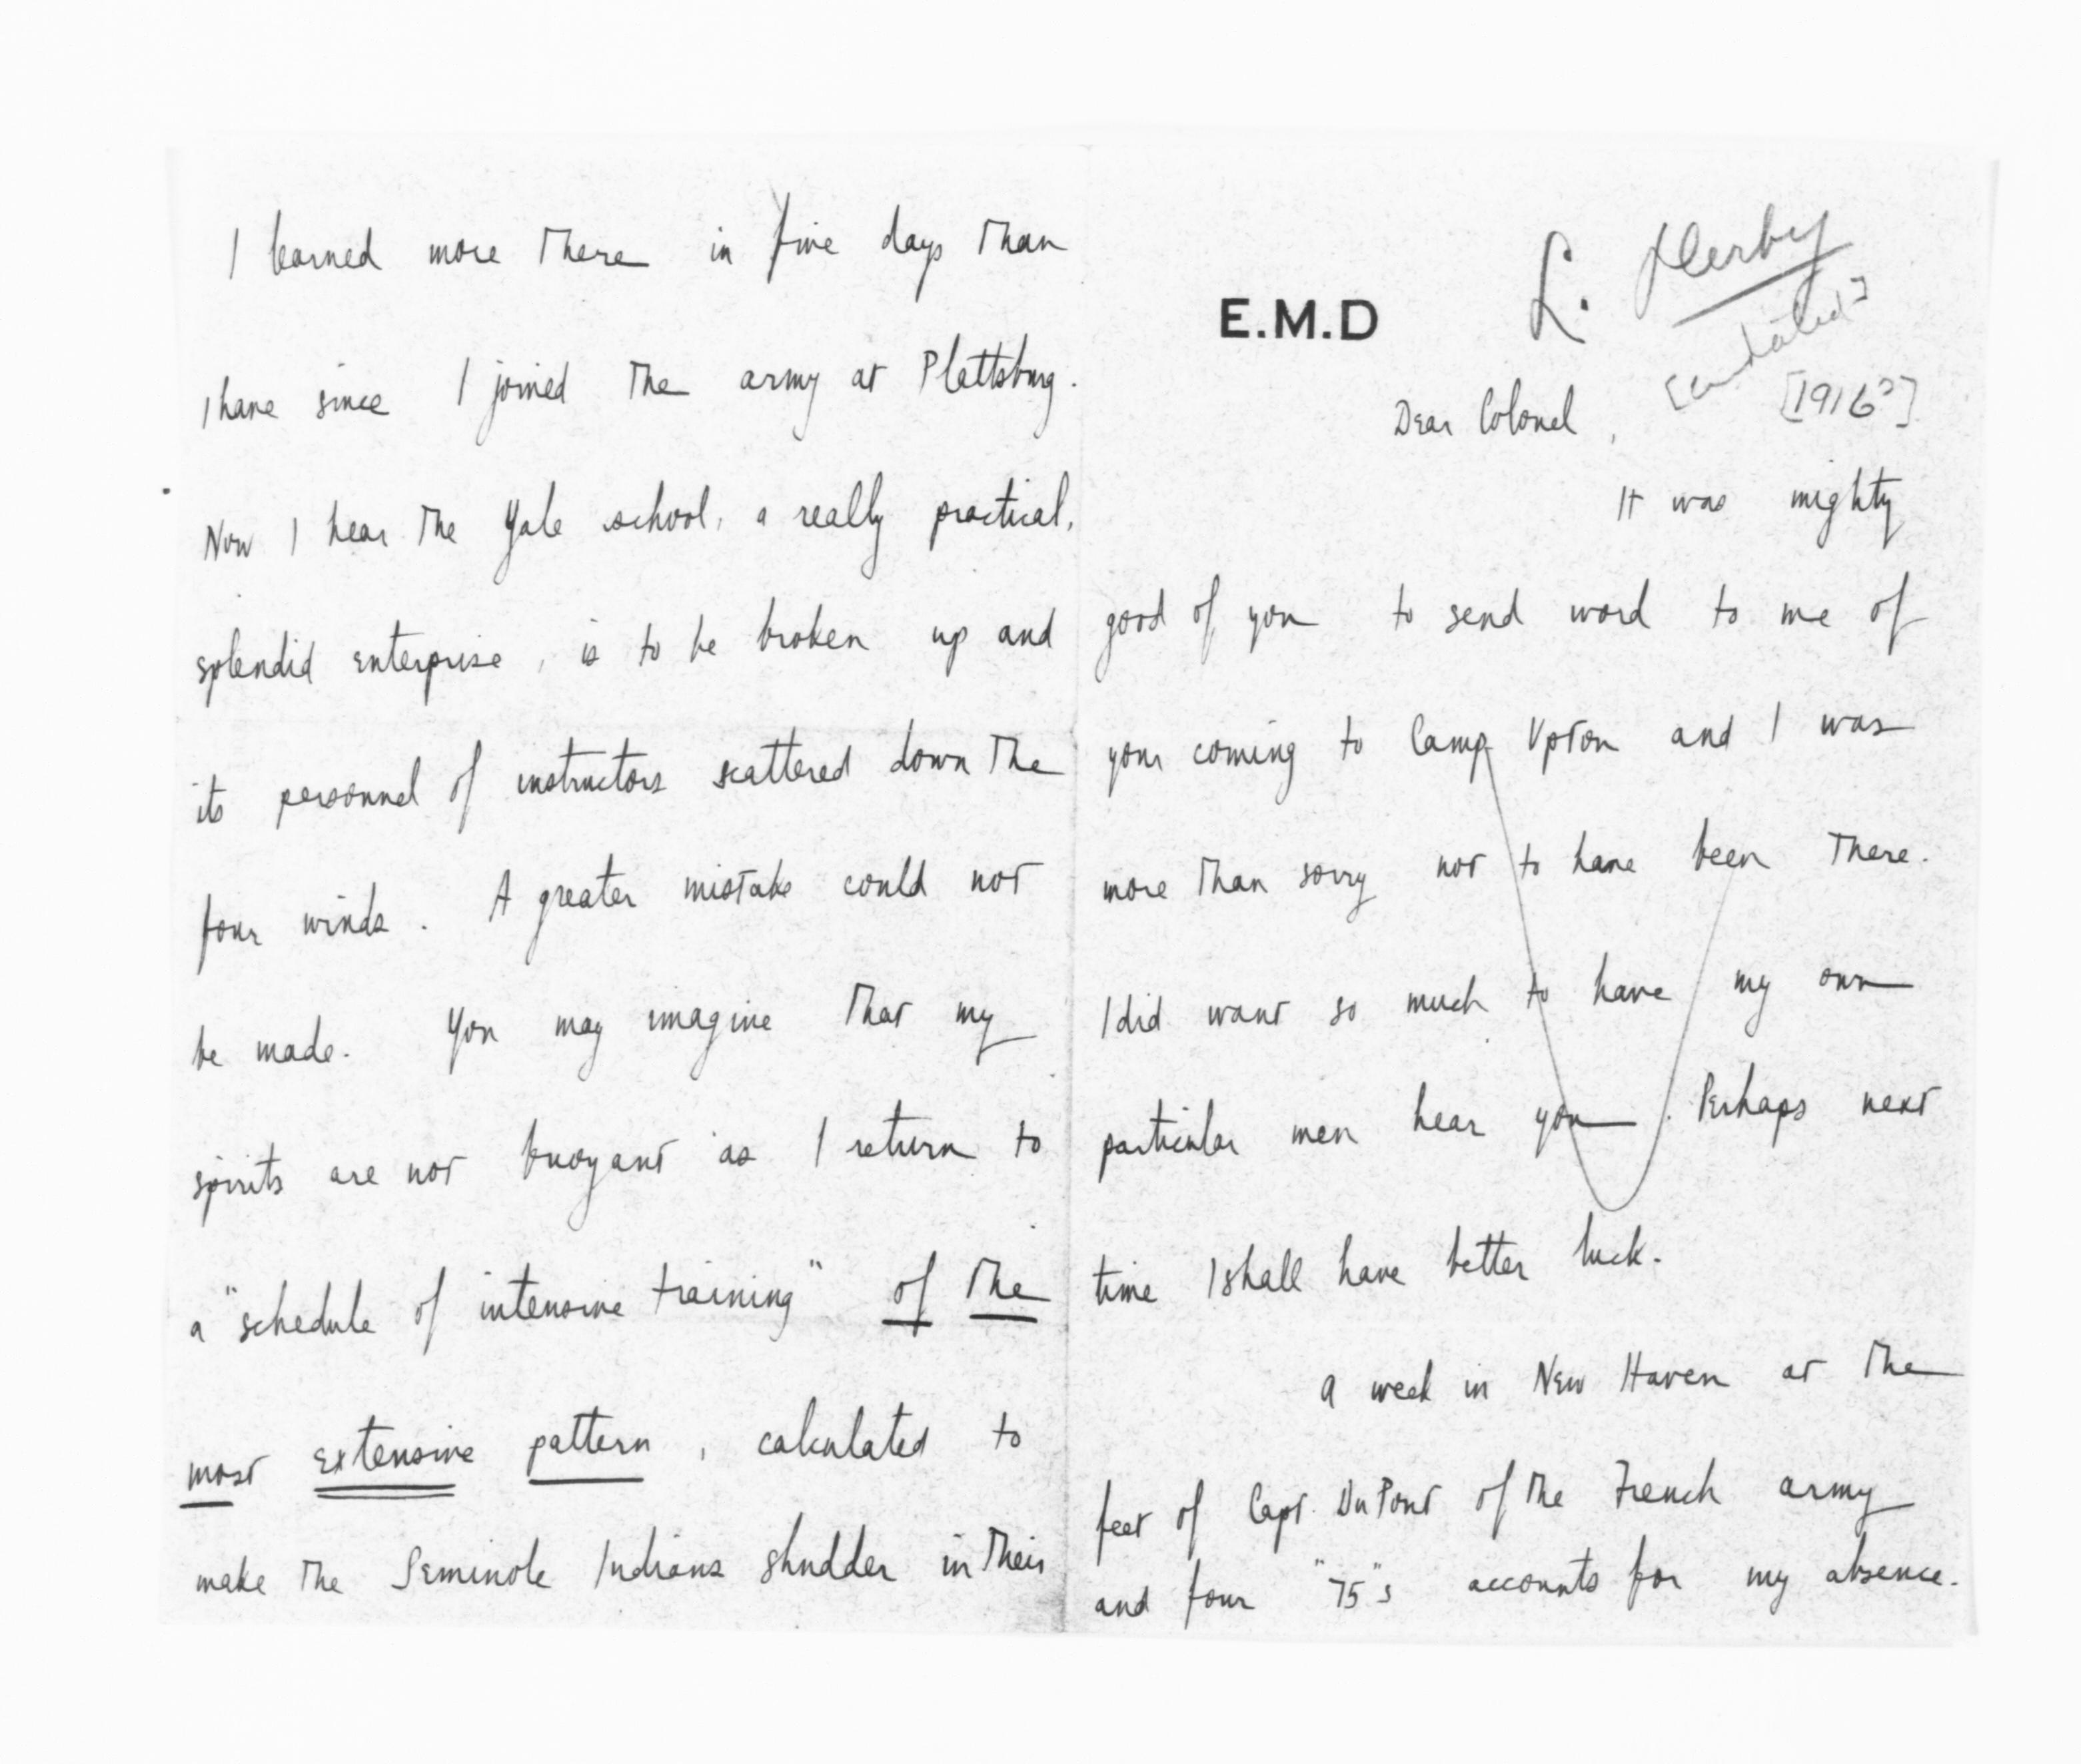 E.M.D
L. Derby
[undated]
[1916?]
Dear Colonel,
It was mighty
good of you to send word to me of
your coming to Camp Upton and I was
more than sorry not to have been there.
I did want so much to have my own
particular men hear you. Perhaps next
time I shall have better luck.
A week in New Haven at the
feet of Capt. DuPont of the French army
and four "75"s accounts for my absence.
I learned more there in five days than
I have since I joined the army at Plattsburg.
Now I hear the Yale school, a really practical,
splendid enterprise, is to be broken up and
its personnel of instructors scattered down the
four winds. A greater mistake could not
be made. You may imagine that my
spirits are not buoyant as I return to
a "schedule of intensive training" of the
most extensive pattern, calculated to
make the Seminole Indians shudder in their